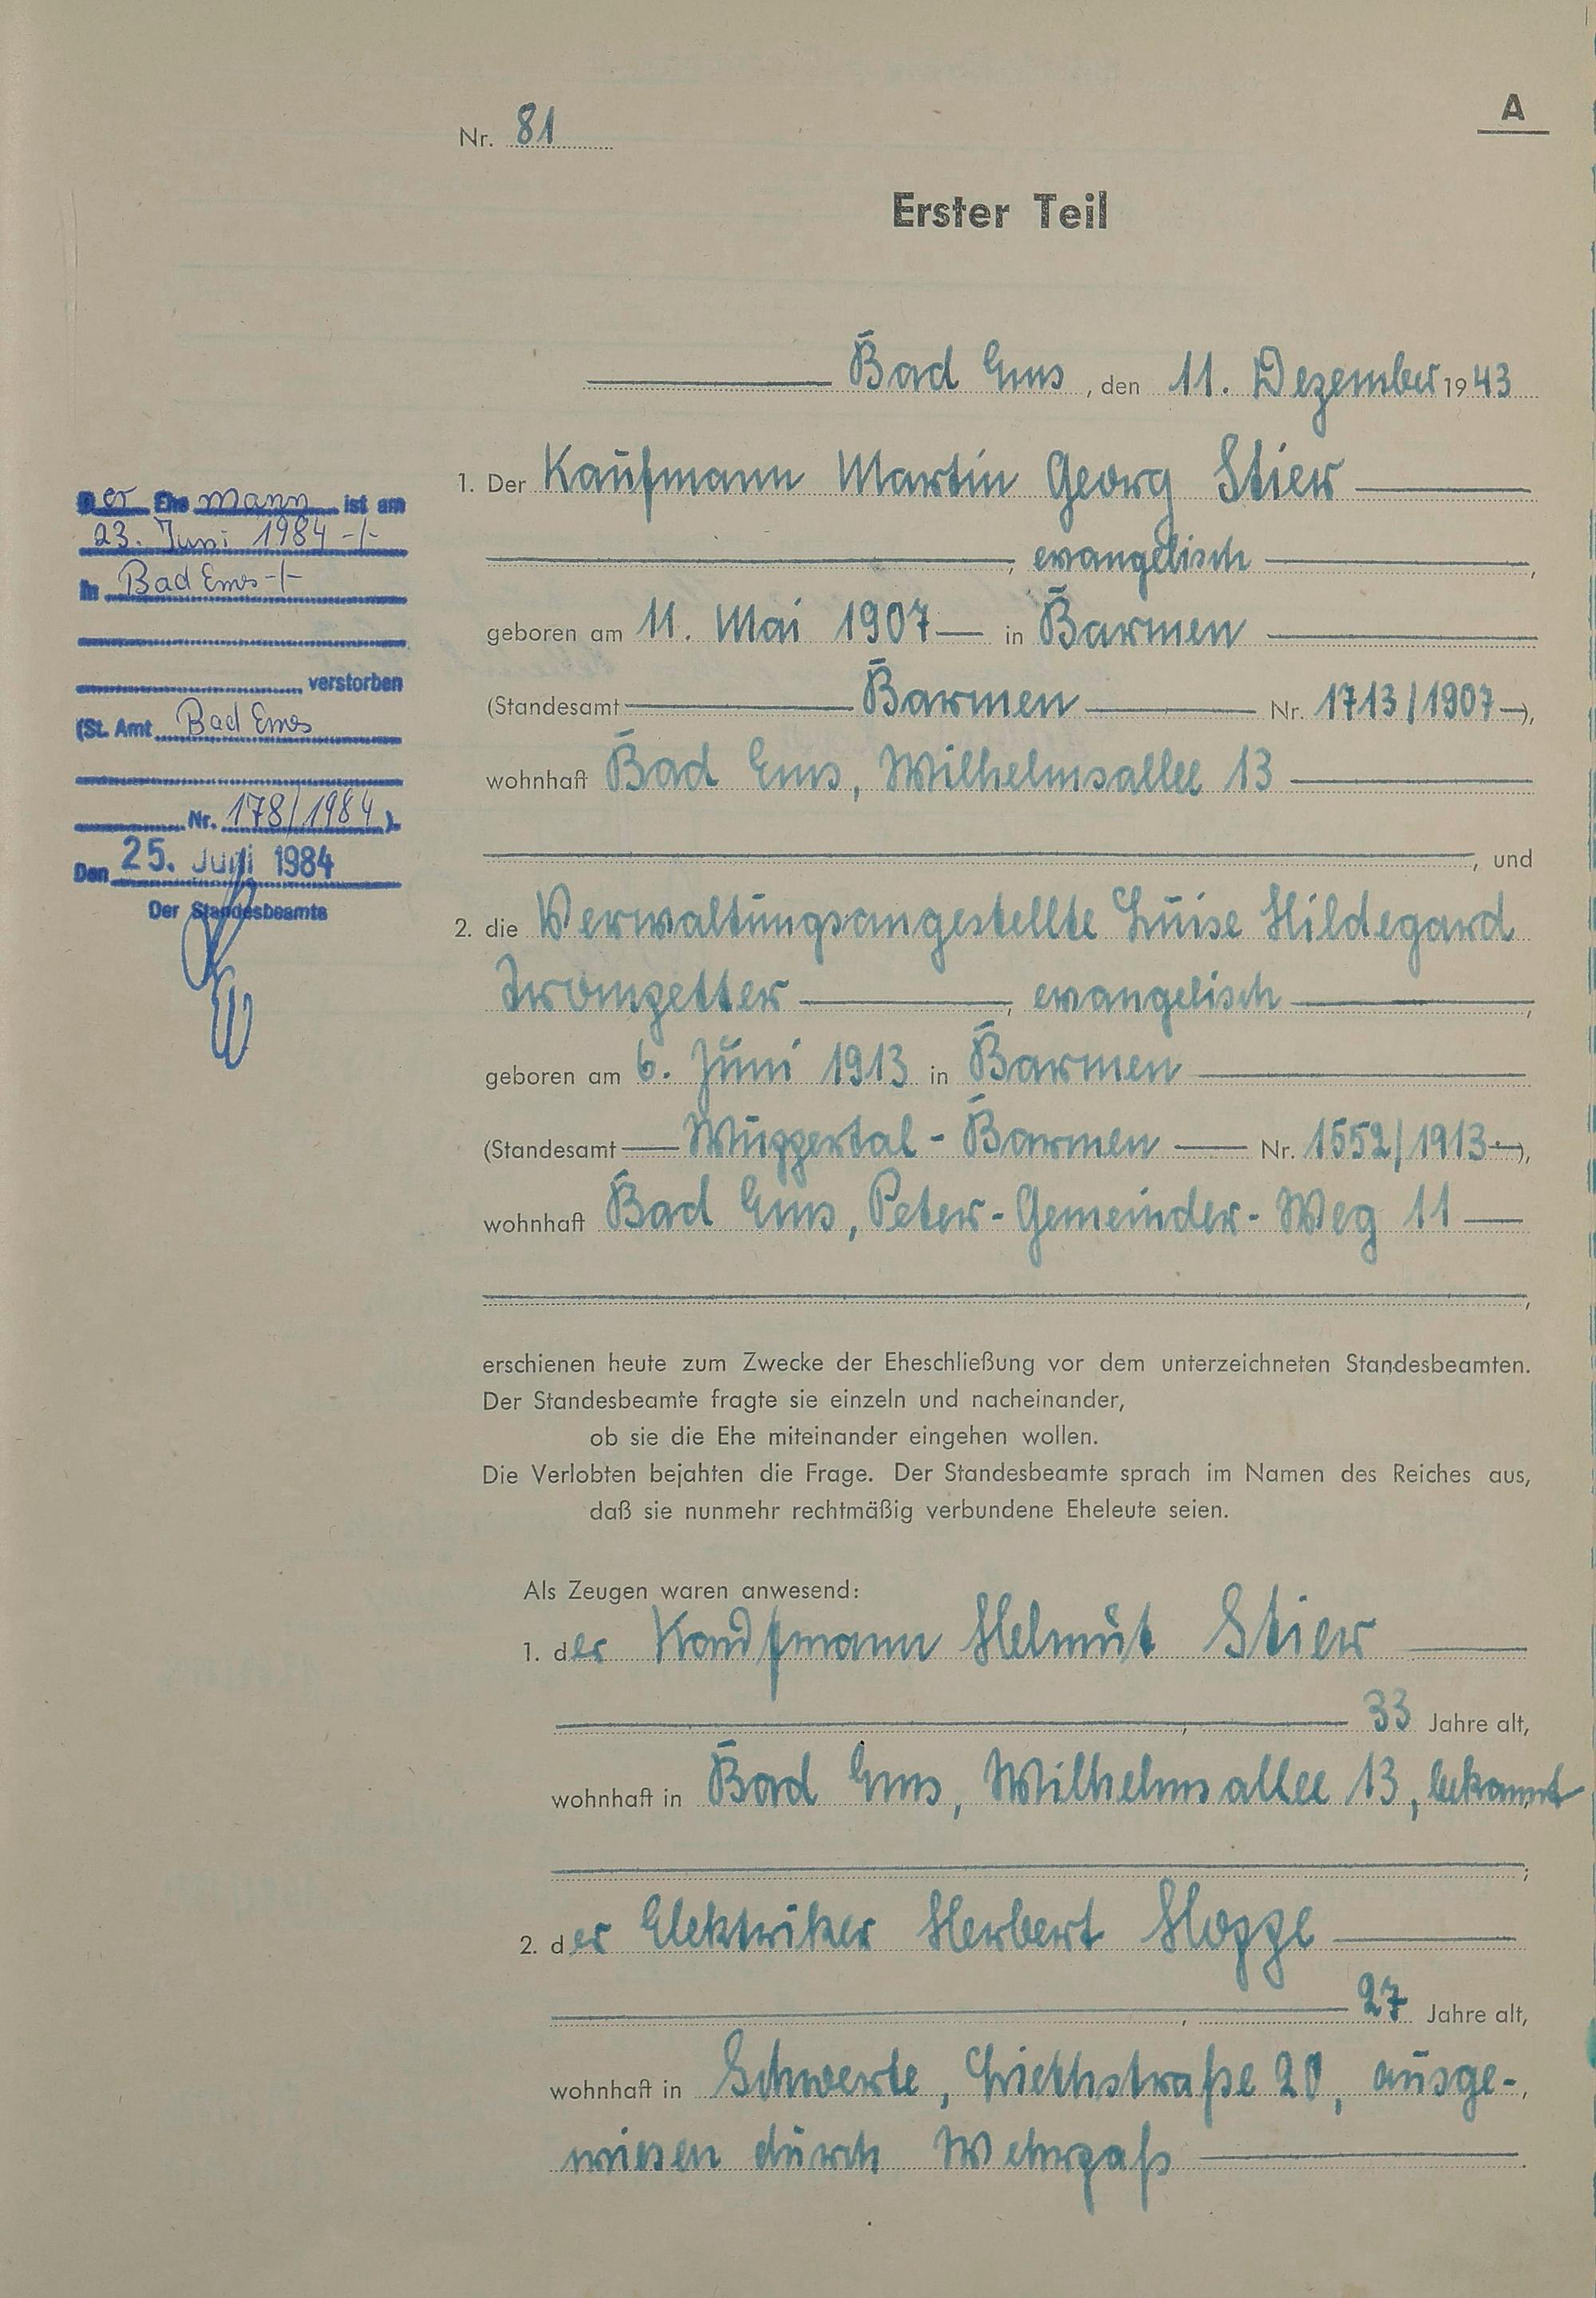 A
Nr. 81
Erster Teil
Bad Ems, den 11. Dezember 1943
1. Der Kaufmann Martin Georg Stier
, evangelisch,
geboren am 11. Mai 1907 in Barmen
(Standesamt Barmen Nr. 1713/1907),
wohnhaft Bad Ems, Wilhelmsallee 13
, und
2. die Verwaltungsangestellte Luise Hildegard
Tromgetter, evangelisch,
geboren am 6. Juni 1913 in Barmen
(Standesamt Wuppertal-Barmen Nr. 1552/1913),
wohnhaft Bad Ems, Peter-Gemeinder-Weg 11
,
erschienen heute zum Zwecke der Eheschließung vor dem unterzeichneten Standesbeamten.
Der Standesbeamte fragte sie einzeln und nacheinander,
ob sie die Ehe miteinander eingehen wollen.
Die Verlobten bejahten die Frage. Der Standesbeamte sprach im Namen des Reiches aus,
daß sie nunmehr rechtmäßig verbundene Eheleute seien.
Als Zeugen waren anwesend:
1. der Kaufmann Helmut Stier
, 33 Jahre alt,
wohnhaft in Bad Ems, Wilhelmsallee 13, bekannt
;
2. der Elektriker Herbert Hoppe
, 27 Jahre alt,
wohnhaft in Schwerte, 20, ausge-,
wiesen durch Wehrpaß.
Der Ehemann ist am
23. Juni 1984 -/-
in Bad Ems -/-
verstorben
(St. Amt Bad Ems
Nr. 178/1984).
Den 25. Juni 1984
Der Standesbeamte